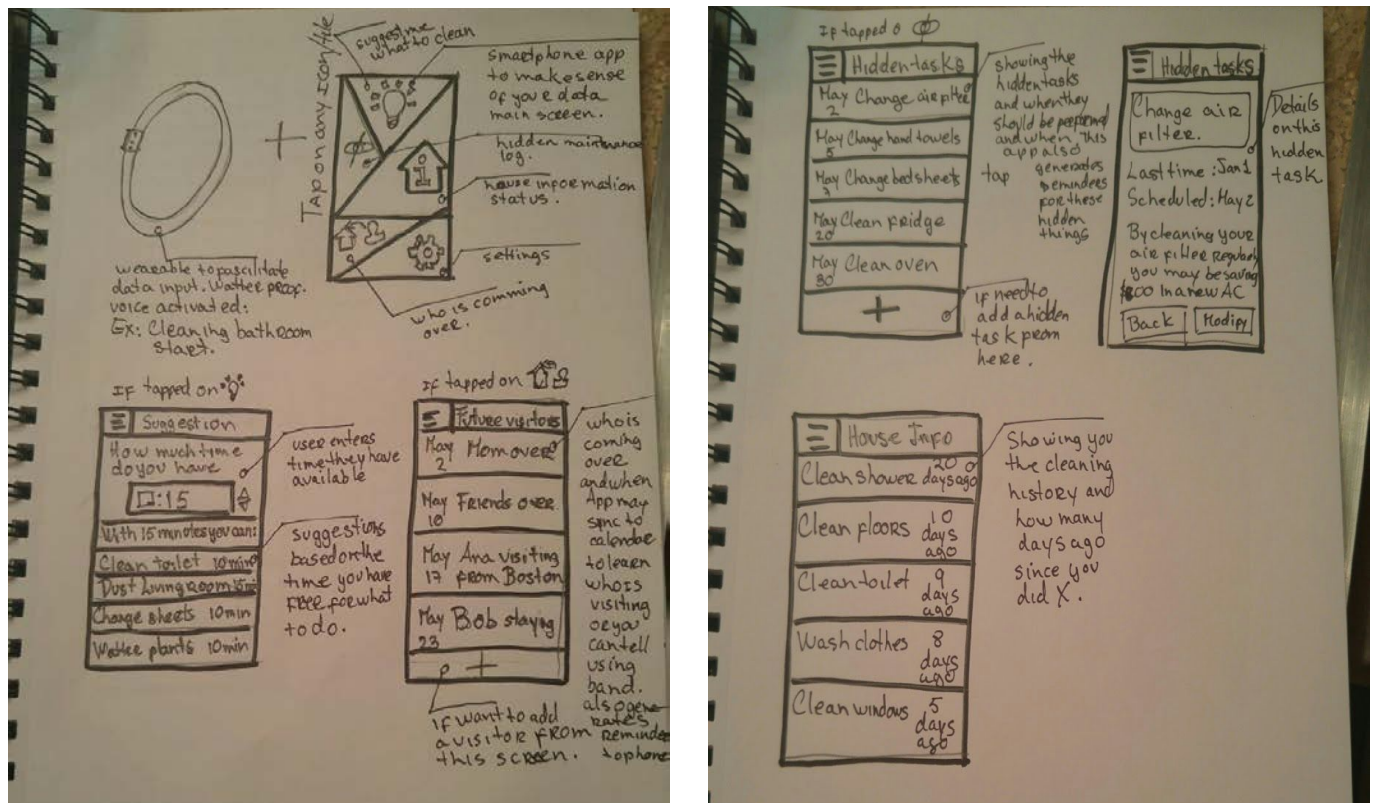 suggest me
what to clean
Tap on any icon/tile
smartphone app
to make sense
of your data
main screen.
hidden maintenance
log.
house information
status.
settings
who is comming
over.
wearable to facilitate
data input. Watter proof.
voice activated:
Ex: Cleaning bathroom
start.
If tapped on
Suggestion
How much time
do you have
:15
With 15 minutes you can:
Clean toilet 10min
Dust Living room 15min
Change sheets 10min
Watter plants 10min
user enters
time they have
available
suggestions
based on the
time you have
FREE for what
to do.
If tapped on
Future visitors
May 2 Mom over
May 10 Friends over
May 17 Ana visiting
from Boston
May 23 Bob staying
+
who is
coming
over
and when
App may
sync to
calendar
to learn
who is
visiting
or you
can tell
using
band.
also gene-
rates
reminder
to phone
if want to add
a visitor from
this screen.
If tapped o
Hidden tasks
May 2 Change air filter
May 5 Change hand towels
May 7 Change bed sheets
May 20 Clean fridge
May 30 Clean oven
+
showing the
hidden tasks
and when they
should be performed
and when this
app also
generates
reminders
for these
hidden
things
tap
if need to
add a hidden
task from
here.
Hidden tasks
Change air
filter.
Last time: Jan 1
Scheduled: May 2
By cleaning your
air filter regularly
you may be saving
In a new AC
Back
Modify
Details
on this
hidden
task
House Info
Clean shower 20 days ago
Clean floors 10 days ago
Clean toilet 9 days ago
Wash clothes 8 days ago
Clean windows 5 days ago
Showing you
the cleaning
history and
how many
days ago
since you
did X.